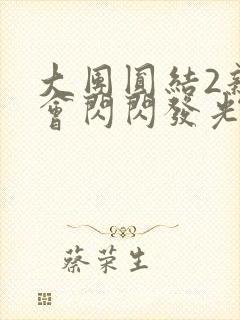 大團圓結2
會閃閃發光
蔡荣生